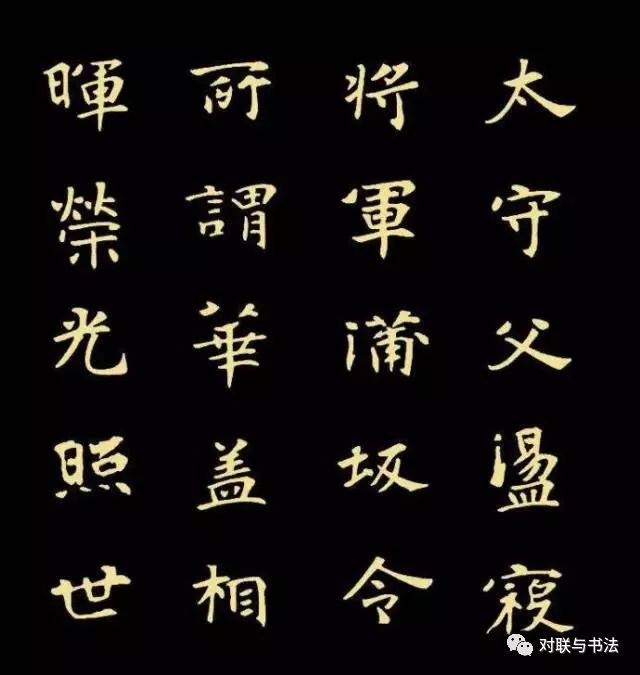 太守父盪寇
將軍蒲坂令
所謂華盖相
暉榮光照世
对联与书法